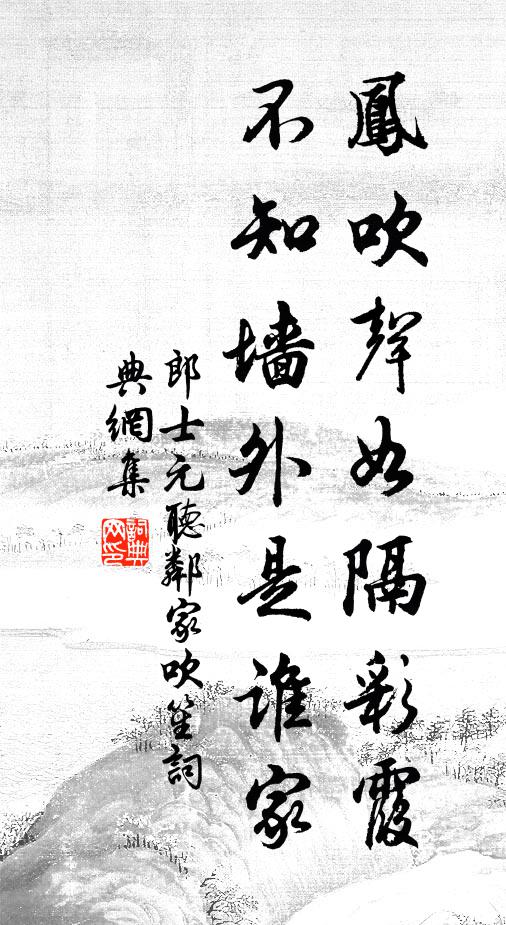 鳳吹聲如隔彩霞
不知墻外是誰家
郎士元聽鄰家吹笙詞
典網集
詞典網印